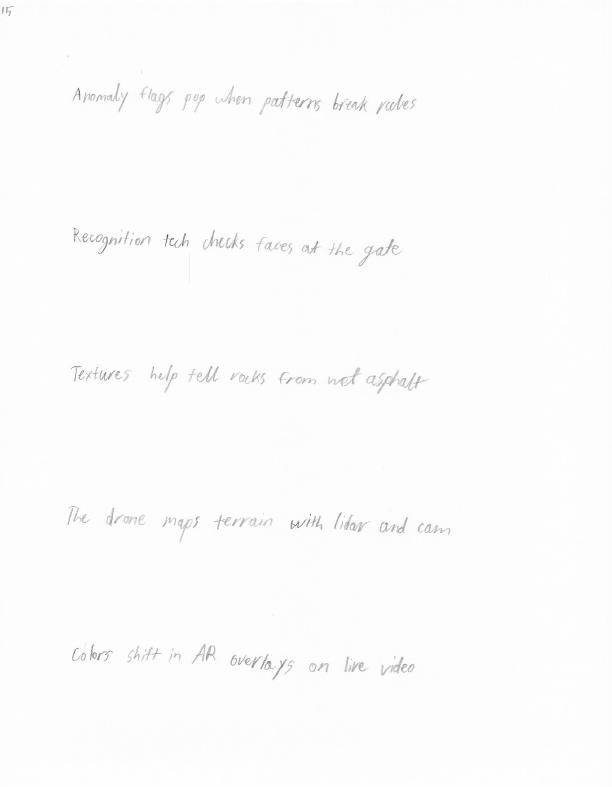 15
Anomaly flags pop when patterns break rules
Recognition tech checks faces at the gate
Textures help tell rocks from wet asphalt
The drone maps terrain with lidar and cam
Colors shift in AR overlays on live video